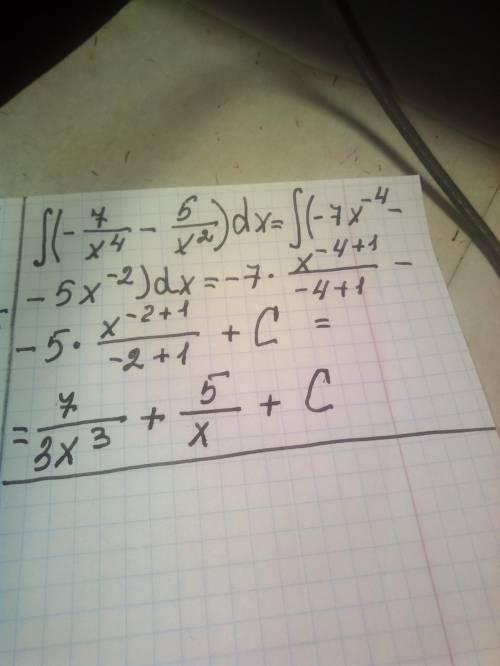 ∫(-7/x⁴ - 5/x²)dx = ∫(-7x⁻⁴ -
- 5x⁻²)dx = -7 · x⁻⁴⁺¹/(-4+1) -
- 5 · x⁻²⁺¹/(-2+1) + C =
= 7/(3x³) + 5/x + C